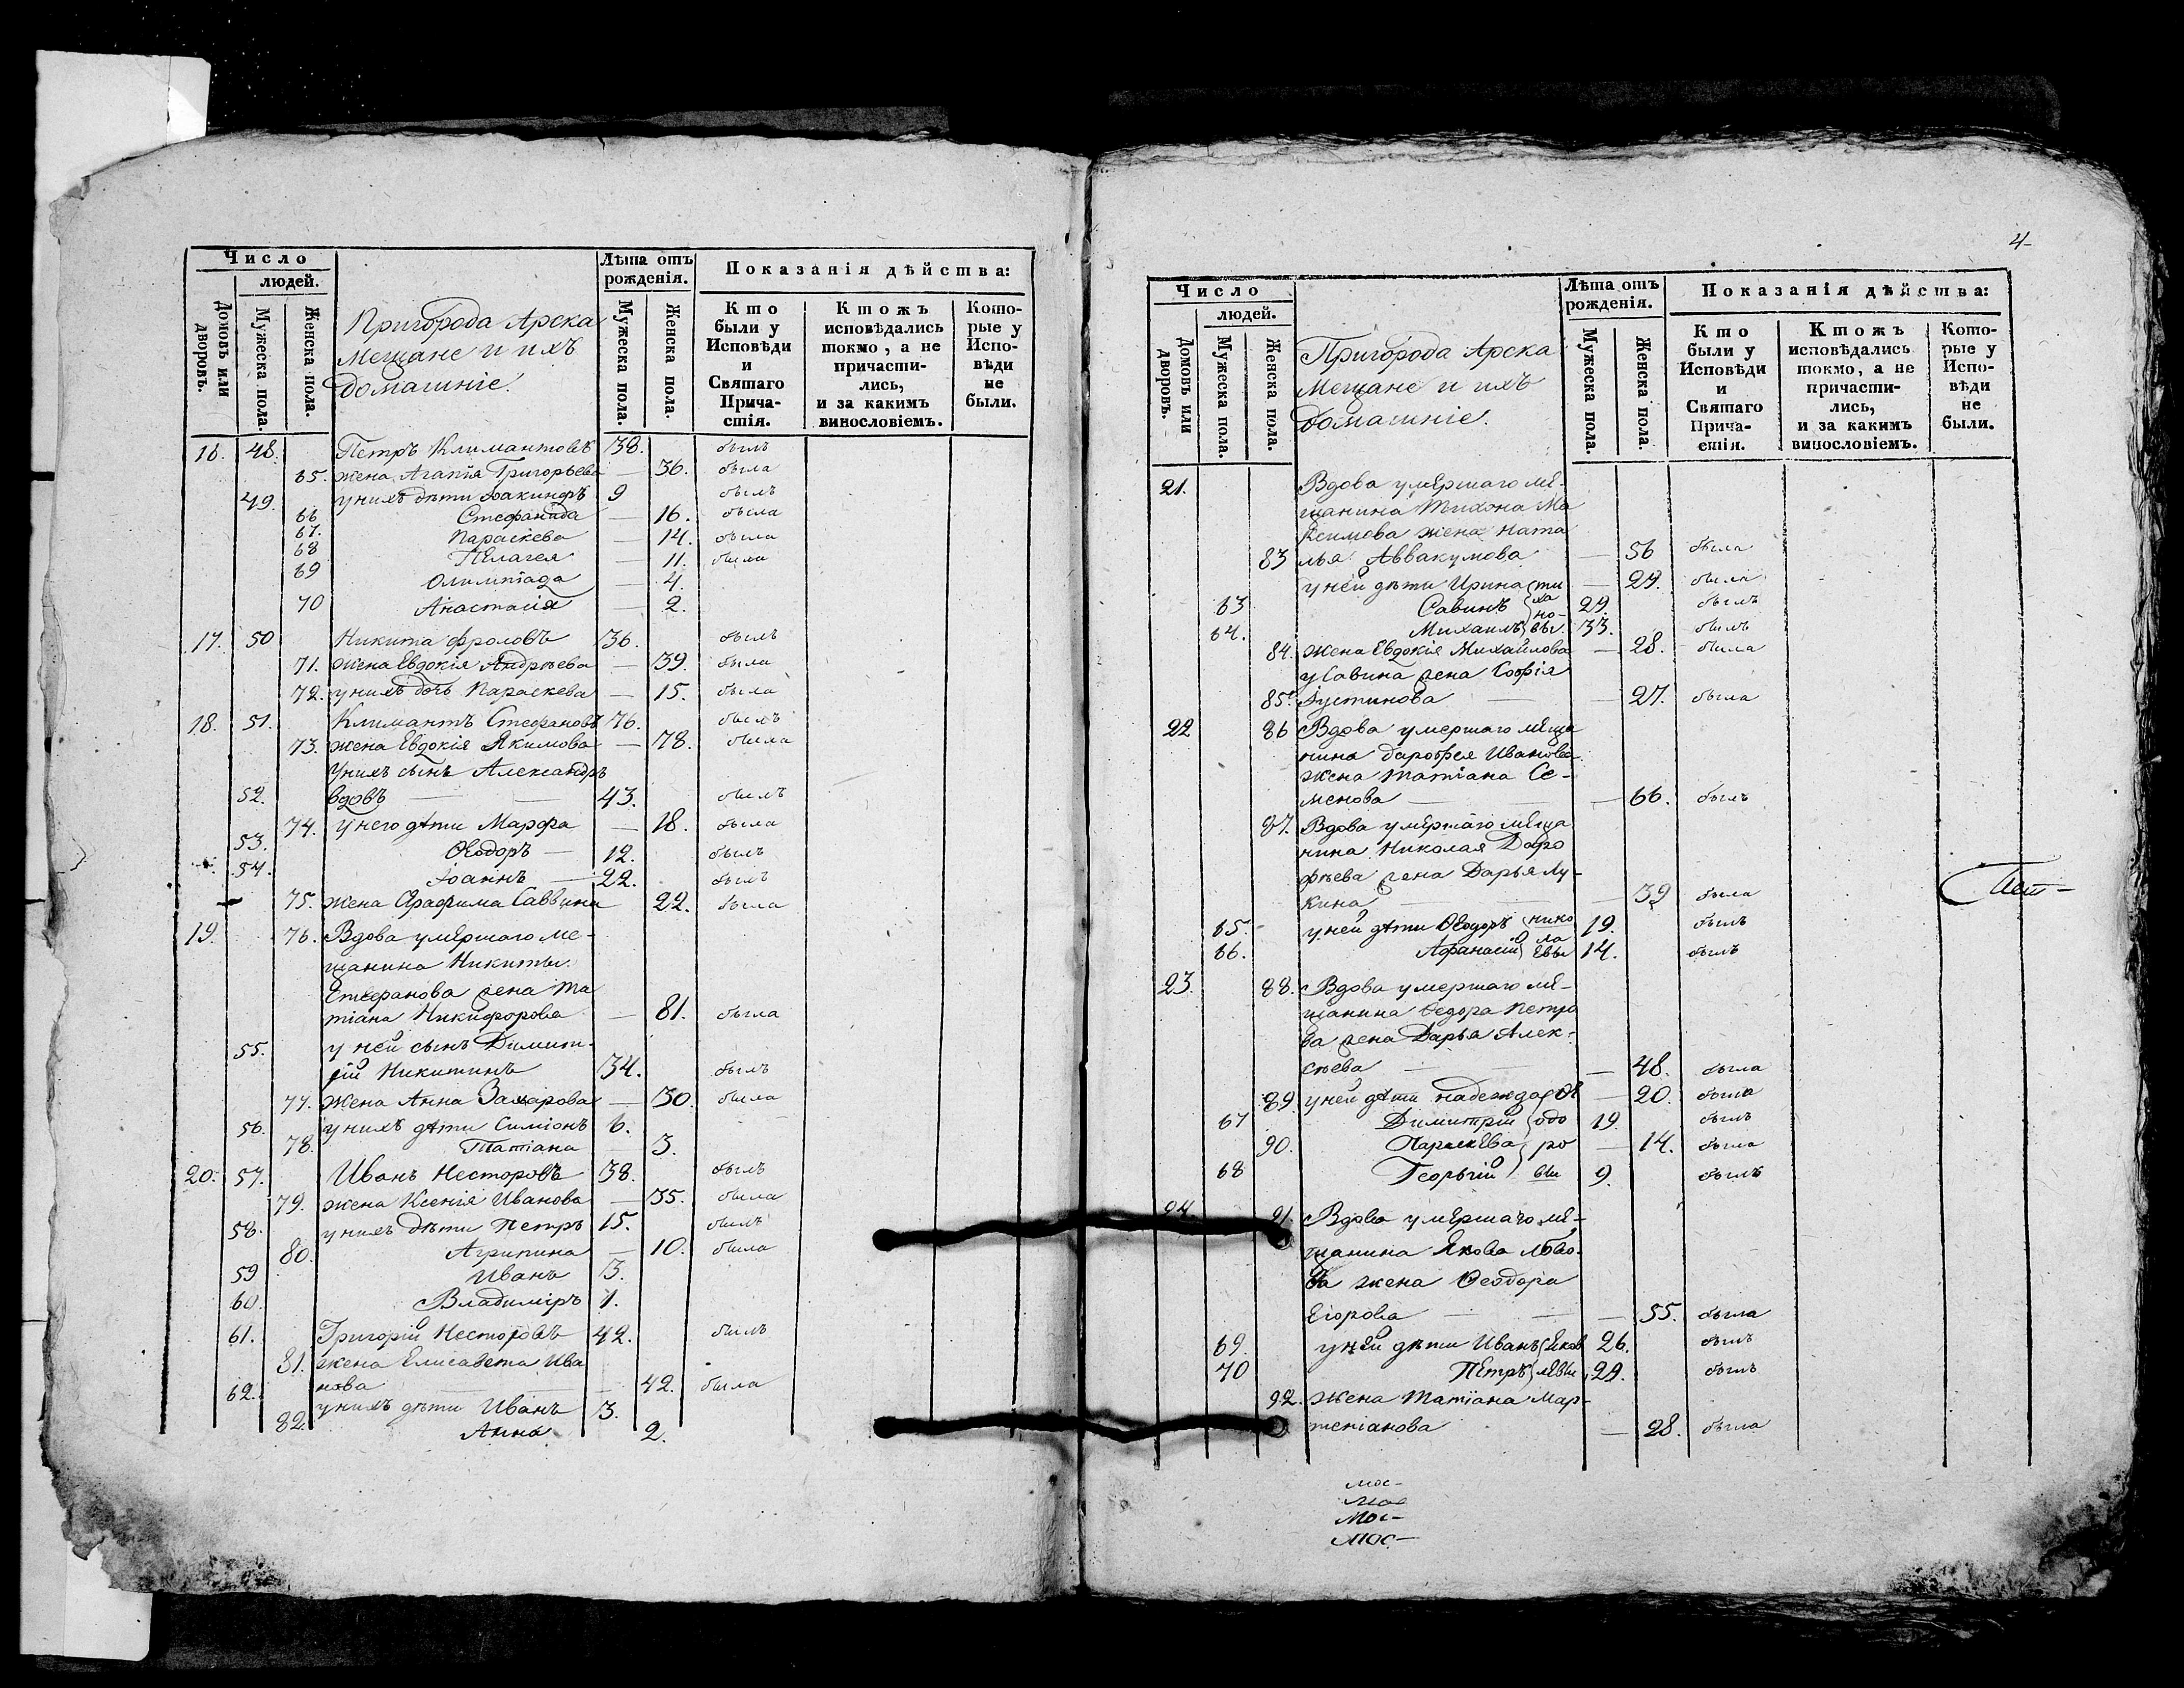 Число
людей.
Домовъ или дворовъ.
Мужеска пола.
Женска пола.
Пригорода Арска
Мещане и ихъ
домашніе.
Лѣта отъ
рожденія.
Мужеска пола.
Женска пола.
Показанія дѣйства:
Кто были у Исповѣди и Святаго Прича-стія.
Ктожъ исповѣдались токмо, а не причасти-лись, и за какимъ винословіемъ.
Кото-рые у Испо-вѣди не были.
16. 48. Петръ Климантовъ 38. былъ
65. жена Агапія Григорьева — 36. была
49. у нихъ дѣти Іоакинфъ 9 былъ
66 Стефанида — 16. была
67. Параскева — 14. была
68 Пелагея — 11. была
69 Олимпіада — 4.
70 Анастасія — 2.
17. 50 Никита Фроловъ 36. былъ
71. жена Евдокія Андрѣева — 39. была
72. у нихъ дочь Параскева — 15. была
18. 51. Климантъ Стефановъ 76. былъ
73. жена Евдокія Якимова — 78. была
У нихъ сынъ Александръ
52. вдовъ — — 43. былъ
74. у него дѣти Марфа — 18. была
53. Ѳеодоръ — 12. былъ
54. Іоаннъ — 22. былъ
75. жена Серафима Саввина 22. была
19. 76. Вдова умершаго ме-
щанина Никиты
Стефанова жена Та
тіана Никифорова — 81. была
55. у ней сынъ Димит-
рій Никитинъ 34. былъ
77. жена Анна Захарова — 30. была
56. у нихъ дѣти Симіонъ 6.
78. Татіана — 3.
20. 57. Иванъ Несторовъ 38. былъ
79. жена Ксенія Иванова — 35. была
58. у нихъ дѣти Петръ 15. былъ
80. Агрипина — 10. была
59 Иванъ 3.
60. Владиміръ 1.
61. Григорій Несторовъ 42. былъ
81. жена Елисавета Ива
нова — — 42. была
62. у нихъ дѣти Иванъ 3.
82. Анна 2.
4
Число
людей.
Домовъ или дворовъ.
Мужеска пола.
Женска пола.
Пригорода Арска
Мещане и ихъ
домашніе.
Лѣта отъ
рожденія.
Мужеска пола.
Женска пола.
Показанія дѣйства:
Кто были у Исповѣди и Святаго Прича-стія.
Ктожъ исповѣдались токмо, а не причасти-лись, и за какимъ винословіемъ.
Кото-рые у Испо-вѣди не были.
21. Вдова умершаго ме-
щанина Тихона Ма
ксимова жена Ната
83 лья Аввакумова — 56 была
у ней дѣти Ирина ти — 29. была
63 Савинъ хо 29. былъ
64. Михаилъ но- вы. 33. былъ
84. жена Евдокія Михайлова — 28. была
у Савина жена Софія
85. Іустинова — — 27. была
22 86 Вдова умершаго меща
нина Дарофея Иванова
жена Татіана Се-
менова — — 66. былъ
87. Вдова умершаго меща
нина Николая Даро
фѣева жена Дарья Лу-
кина — — 39 была
65. у ней дѣти Ѳеодоръ нико 19. былъ
66. Афанасій ла евы 14. былъ
23. 88. Вдова умершаго ме-
щанина Ѳедора Петро
ва жена Дарья Алек-
сѣева — — 48. была
89 у ней дѣти Надежда Ѳе — 20. была
67 Димитрій одо 19 былъ
90. Параскева ро — 14. была
68 Георгій вы 9. былъ
24 91. Вдова умершаго ме-
щанина Якова Льво-
ва жена Ѳеодора
Егорова — — 55. была
69. у ней дѣти Иванъ Яков 26. былъ
70 Петръ левы 29. былъ
92. жена Татіана Мар-
теніанова — 28. была
мос-
мос
Мос-
мос-